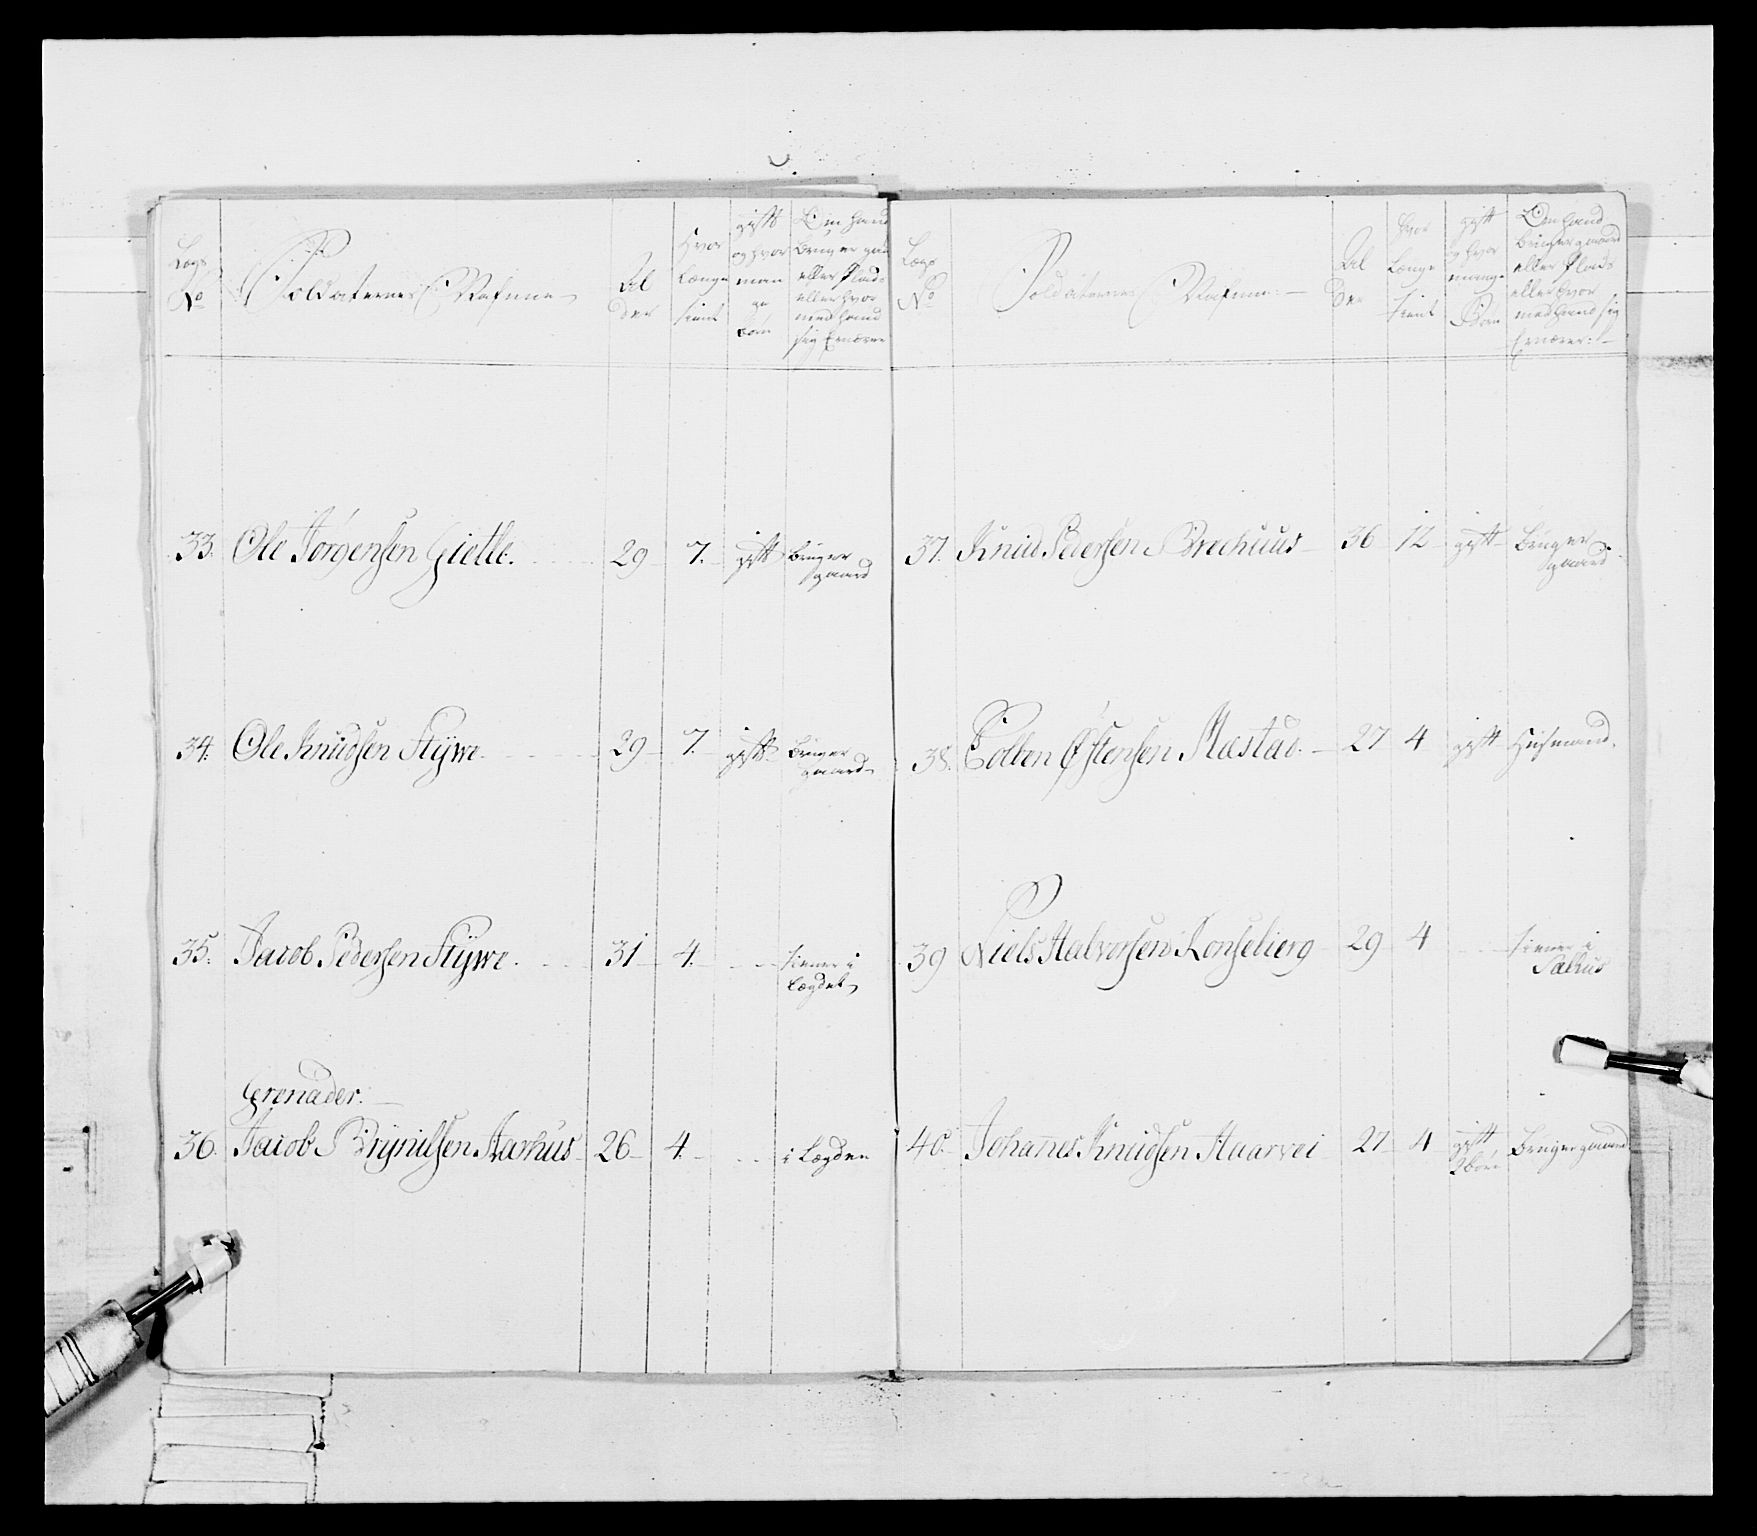 Lægs No
Soldaternes Nafune
Al der
Hvor længe tient
gift og hvor man ge børn
Om hand bruger gaard eller Plads eller hvor med hand sig Ernærer
33. Ole Jørgensen Gielle. 29 7. gift bruger gaard
34. Ole Knudsen Stywe. 29 7. gift bruger gaard
35. Jacob Pedersen Stywe. 31 4. tiener i Lægdet
Grenader:
36. Jacob Brynilsen Aarhus 26 4. i Lægden
Lægs No
Soldaternes Nafune
Al der
hvor længe tient
gift og hvor mange Børn
Om hand bruger gaard eller Plads eller hvor med hand sig Ernærer:
37. Knud Pedersen Brechuus 36 12 gift Bruger gaard
38. Colben Østensen Mastad. 27 4 gift Huusmand.
39 Niels Halvorsen Ronselierg 29 4 tiener i
40. Johanes Knudsen Haarvei 27 4 gift 2 børn Bruger gaard